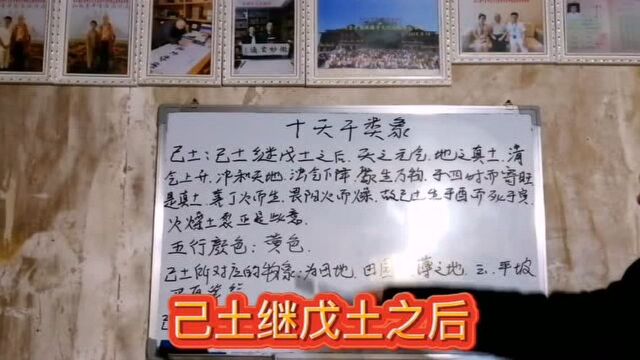 十天干类象
己土：己土继戊土之后，天之元气，地之真土，清
气上升，冲和天地，浊气下降，聚生万物，于四时而寄旺
是真土，喜丁火而生，畏阳火而燥，故己土生于酉而死于寅
火燥土裂正是此意
五行颜色：黄色
己土所对应的物象：为田地，田园 薄之地 三、平坡
己土继戊土之后